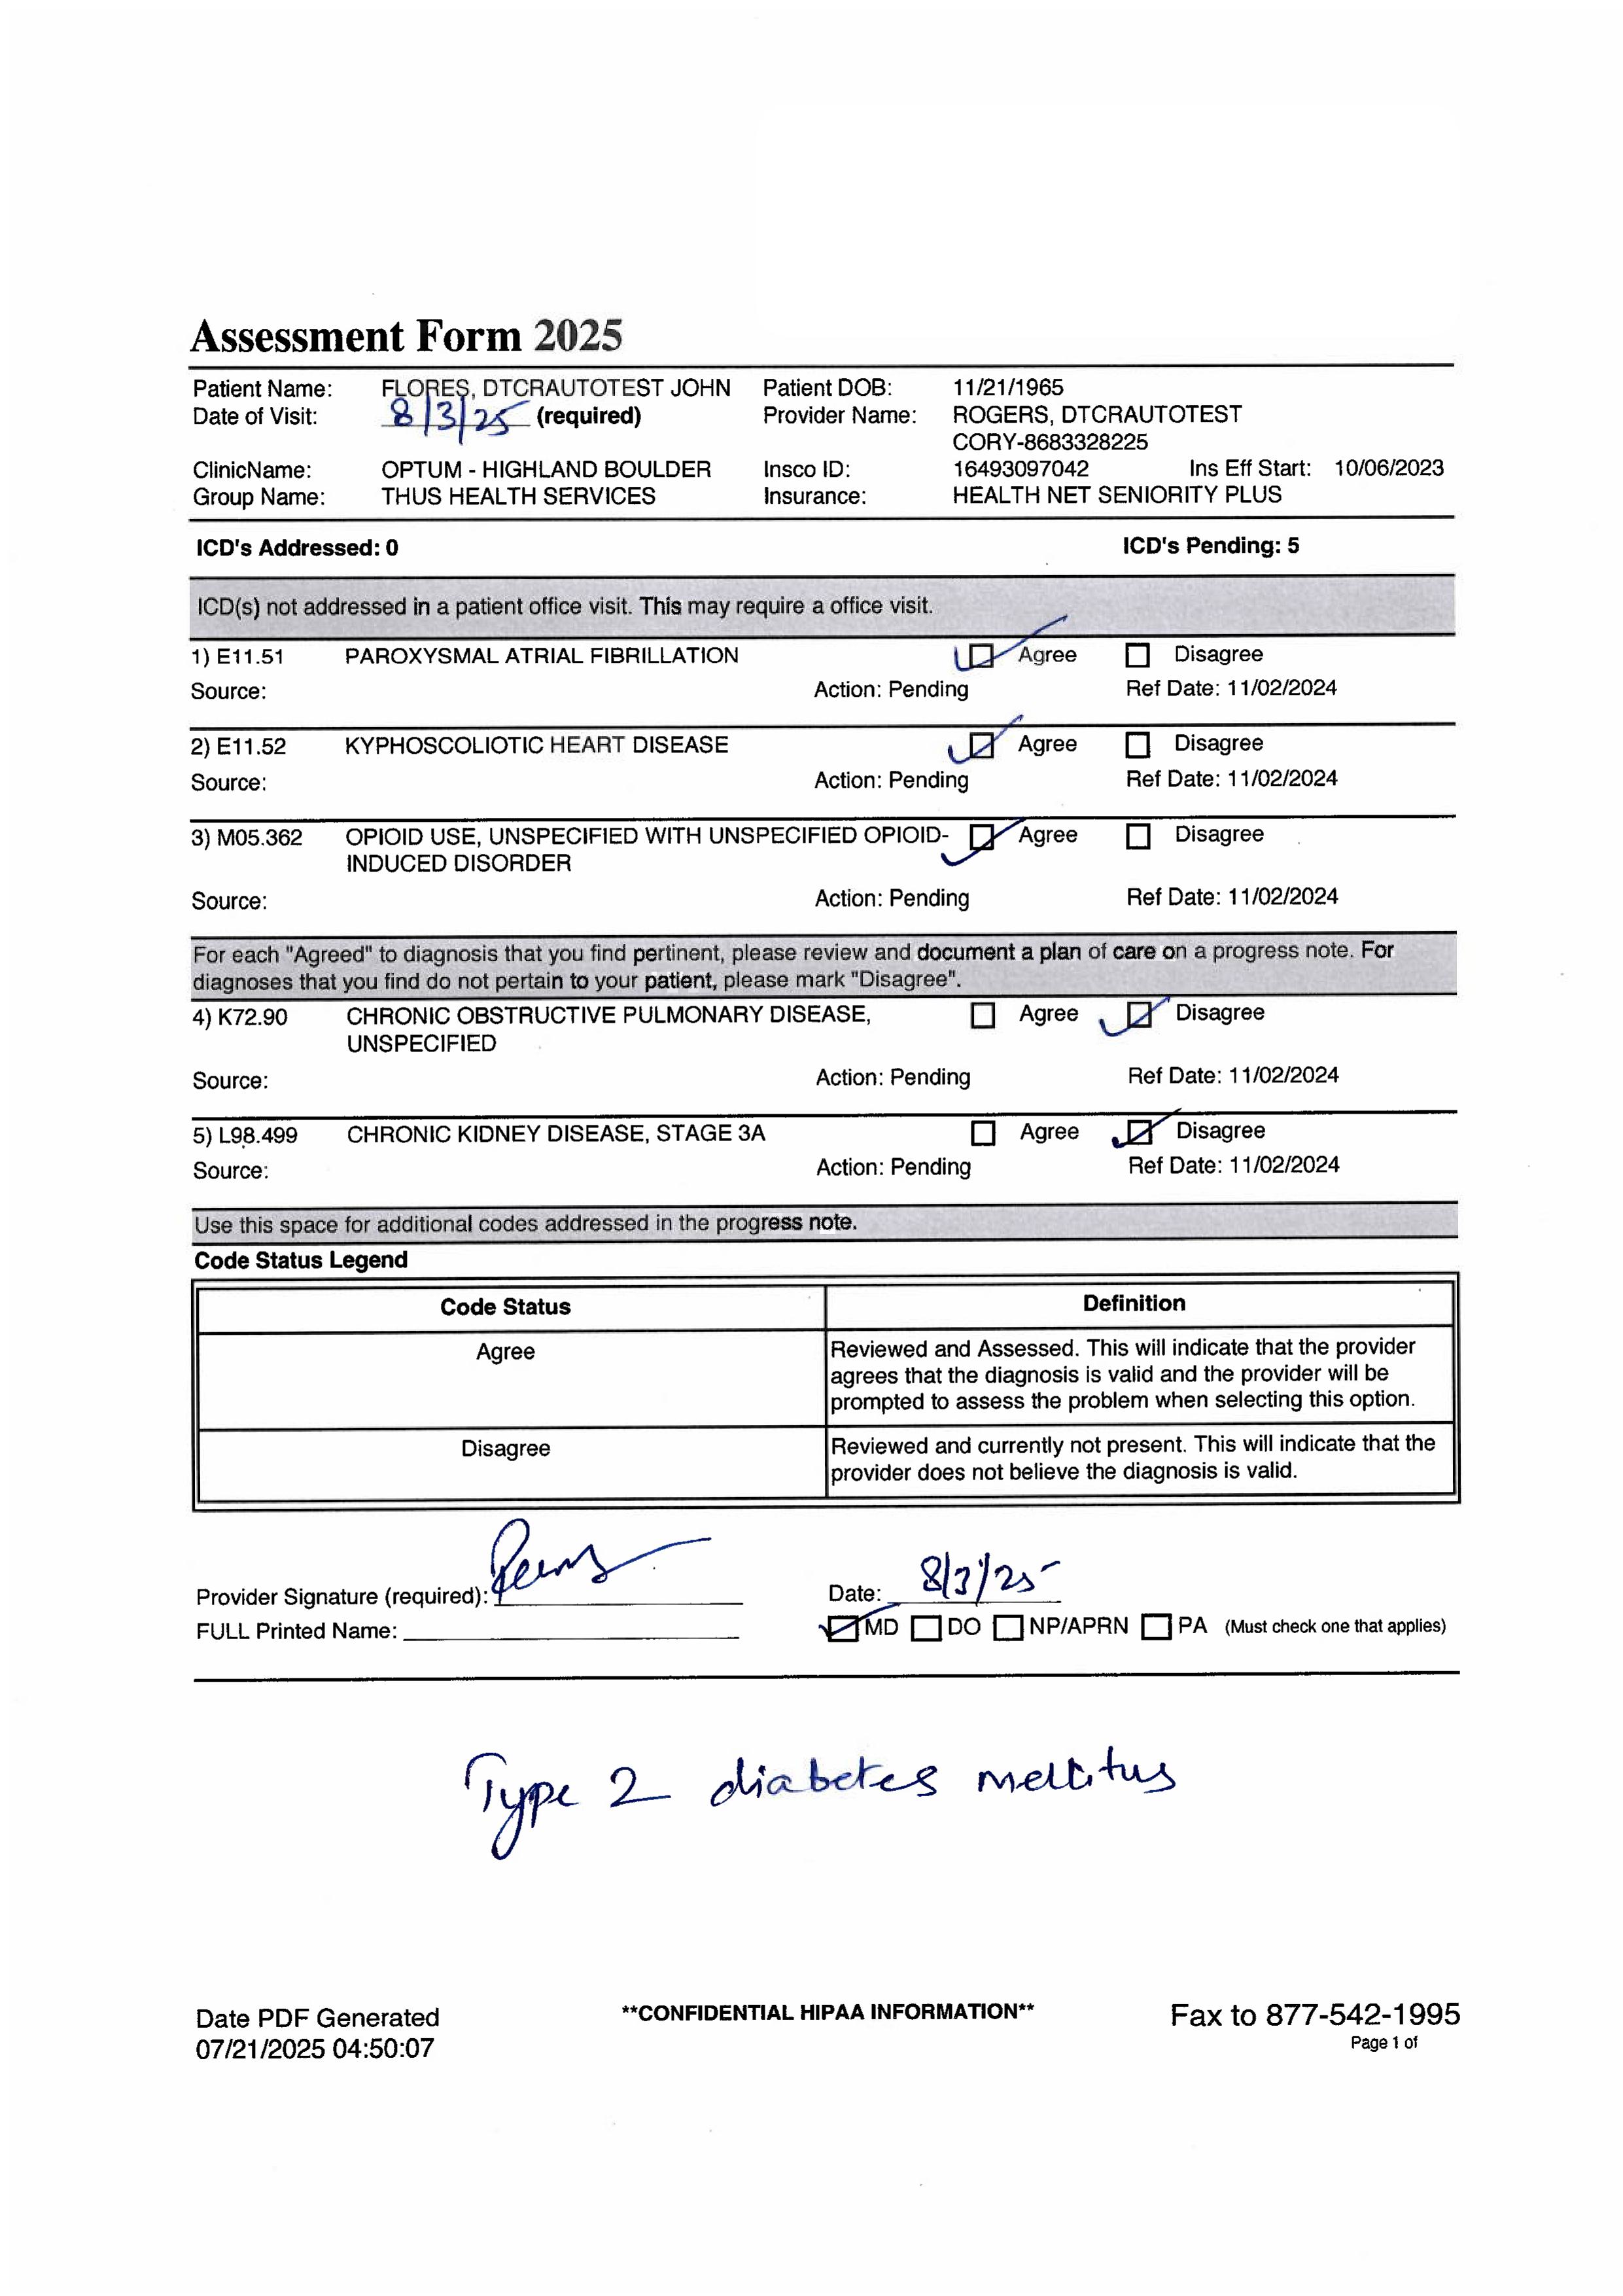 Assessment Form 2025
Patient Name: FLORES, DTCRAUTOTEST JOHN Patient DOB: 11/21/1965
Date of Visit: 8/3/25 (required) Provider Name: ROGERS, DTCRAUTOTEST
CORY-8683328225
ClinicName: OPTUM - HIGHLAND BOULDER Insco ID: 16493097042 Ins Eff Start: 10/06/2023
Group Name: THUS HEALTH SERVICES Insurance: HEALTH NET SENIORITY PLUS
ICD's Addressed: 0 ICD's Pending: 5
ICD(s) not addressed in a patient office visit. This may require a office visit.
1) E11.51 PAROXYSMAL ATRIAL FIBRILLATION Agree Disagree
Source: Action: Pending Ref Date: 11/02/2024
2) E11.52 KYPHOSCOLIOTIC HEART DISEASE Agree Disagree
Source: Action: Pending Ref Date: 11/02/2024
3) M05.362 OPIOID USE, UNSPECIFIED WITH UNSPECIFIED OPIOID- Agree Disagree
INDUCED DISORDER
Source: Action: Pending Ref Date: 11/02/2024
For each "Agreed" to diagnosis that you find pertinent, please review and document a plan of care on a progress note. For
diagnoses that you find do not pertain to your patient, please mark "Disagree".
4) K72.90 CHRONIC OBSTRUCTIVE PULMONARY DISEASE, Agree Disagree
UNSPECIFIED
Source: Action: Pending Ref Date: 11/02/2024
5) L98.499 CHRONIC KIDNEY DISEASE, STAGE 3A Agree Disagree
Source: Action: Pending Ref Date: 11/02/2024
Use this space for additional codes addressed in the progress note.
Code Status Legend
Code Status Definition
Agree Reviewed and Assessed. This will indicate that the provider
agrees that the diagnosis is valid and the provider will be
prompted to assess the problem when selecting this option.
Disagree Reviewed and currently not present. This will indicate that the
provider does not believe the diagnosis is valid.
Provider Signature (required): Date: 8/3/25
FULL Printed Name: MD DO NP/APRN PA (Must check one that applies)
Type 2 diabetes mellitus
Date PDF Generated **CONFIDENTIAL HIPAA INFORMATION** Fax to 877-542-1995
07/21/2025 04:50:07 Page 1 of